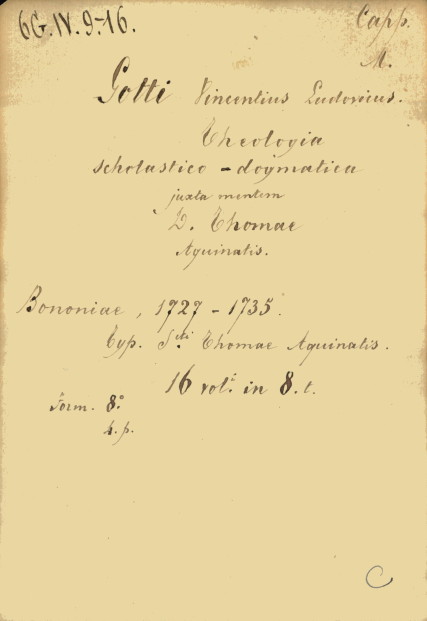 6G.IV.9-16.
Capp.
M.
Gotti Vincentius Ludovicus.
Theologia
scholastico - dogmatica
juxta mentem
D. Thomae
Aquinatis.
Bononiae, 1727 - 1735.
Typ. S.ti Thomae Aquinatis.
16 vol.i in 8. t.
Form. 8.o
4. p.
C